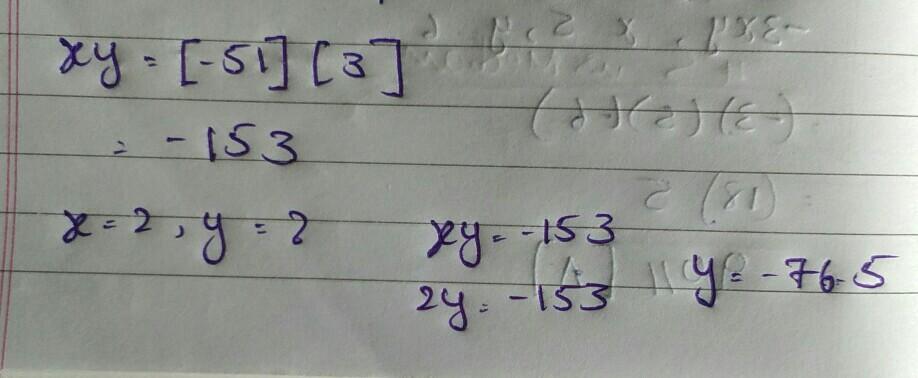 xy = [-51] [3]
= -153
x = 2, y = ?
xy = -153
2y = -153
y = -76.5